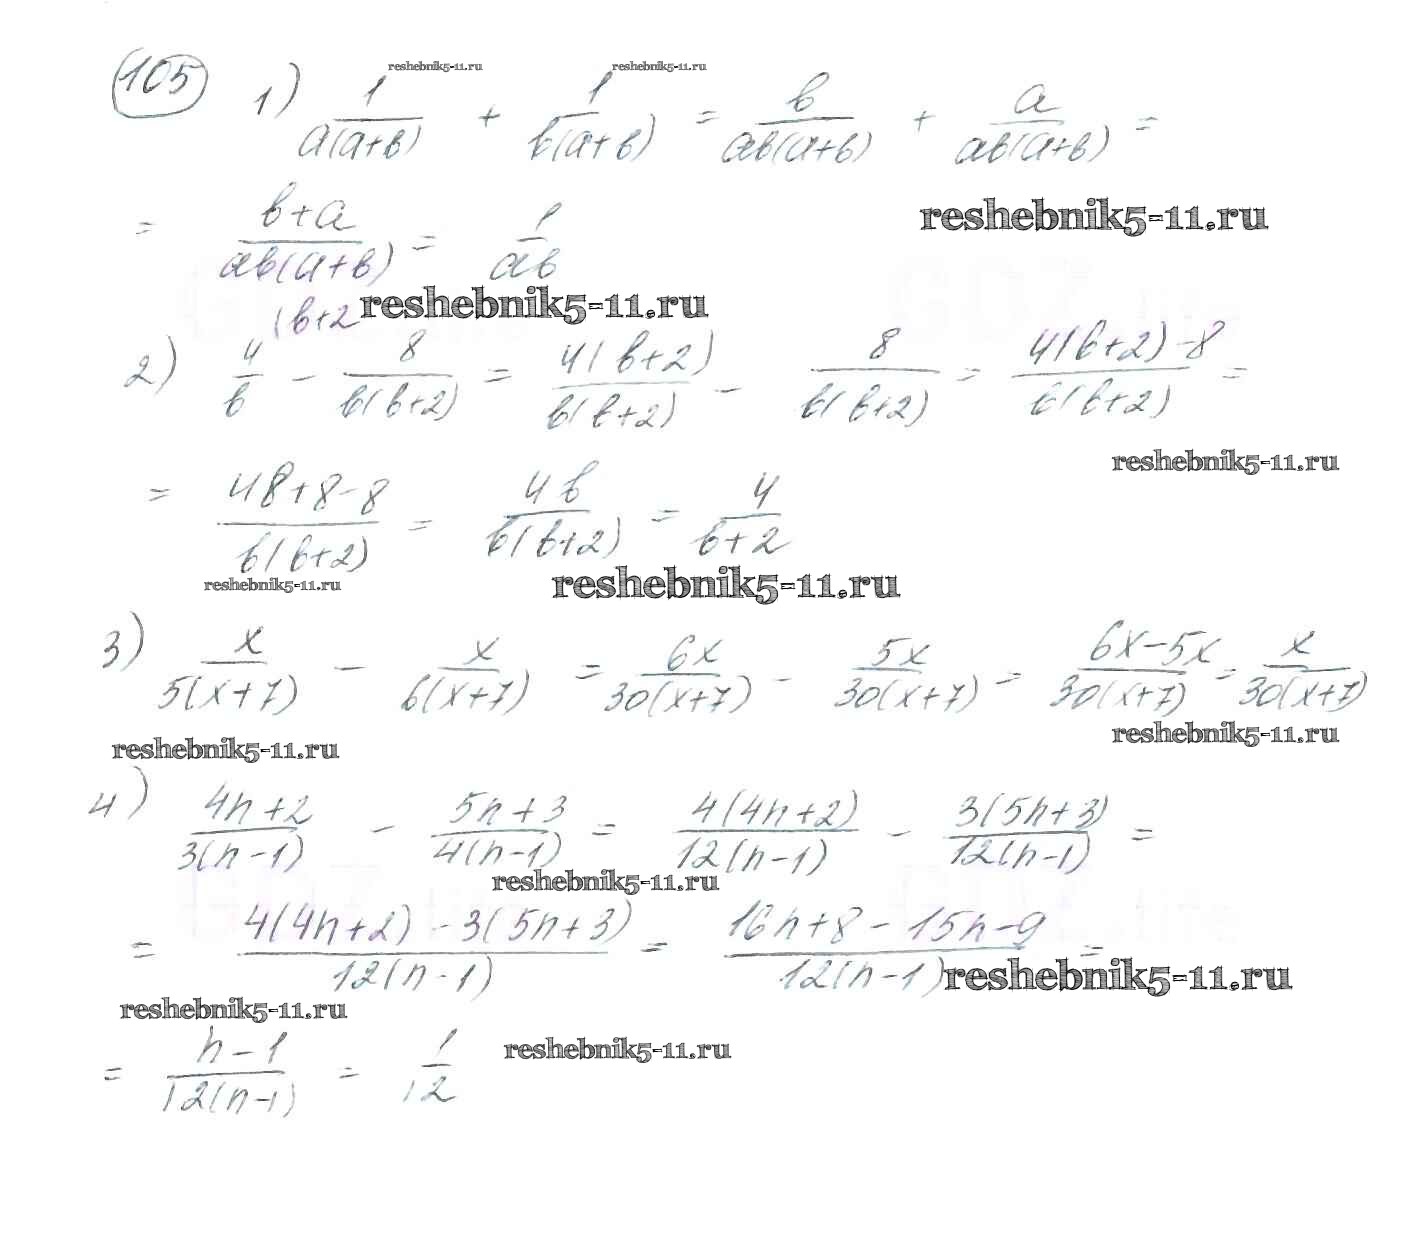 105 1) 1/(a(a+b)) + 1/(b(a+b)) = b/(ab(a+b)) + a/(ab(a+b)) =
reshebnik5-11.ru reshebnik5-11.ru
= (b+a)/(ab(a+b)) = 1/(ab)
reshebnik5-11.ru
(b+2 reshebnik5-11.ru
2) 4/b - 8/(b(b+2)) = 4(b+2)/(b(b+2)) - 8/(b(b+2)) = (4(b+2)-8)/(b(b+2)) =
reshebnik5-11.ru
= (4b+8-8)/(b(b+2)) = 4b/(b(b+2)) = 4/(b+2)
reshebnik5-11.ru reshebnik5-11.ru
3) x/(5(x+7)) - x/(6(x+7)) = 6x/(30(x+7)) - 5x/(30(x+7)) = (6x-5x)/(30(x+7)) = x/(30(x+7))
reshebnik5-11.ru reshebnik5-11.ru
4) (4n+2)/(3(n-1)) - (5n+3)/(4(n-1)) = 4(4n+2)/(12(n-1)) - 3(5n+3)/(12(n-1)) =
reshebnik5-11.ru
= (4(4n+2)-3(5n+3))/(12(n-1)) = (16n+8-15n-9)/(12(n-1)) =
reshebnik5-11.ru
reshebnik5-11.ru
= (n-1)/(12(n-1)) = 1/12
reshebnik5-11.ru